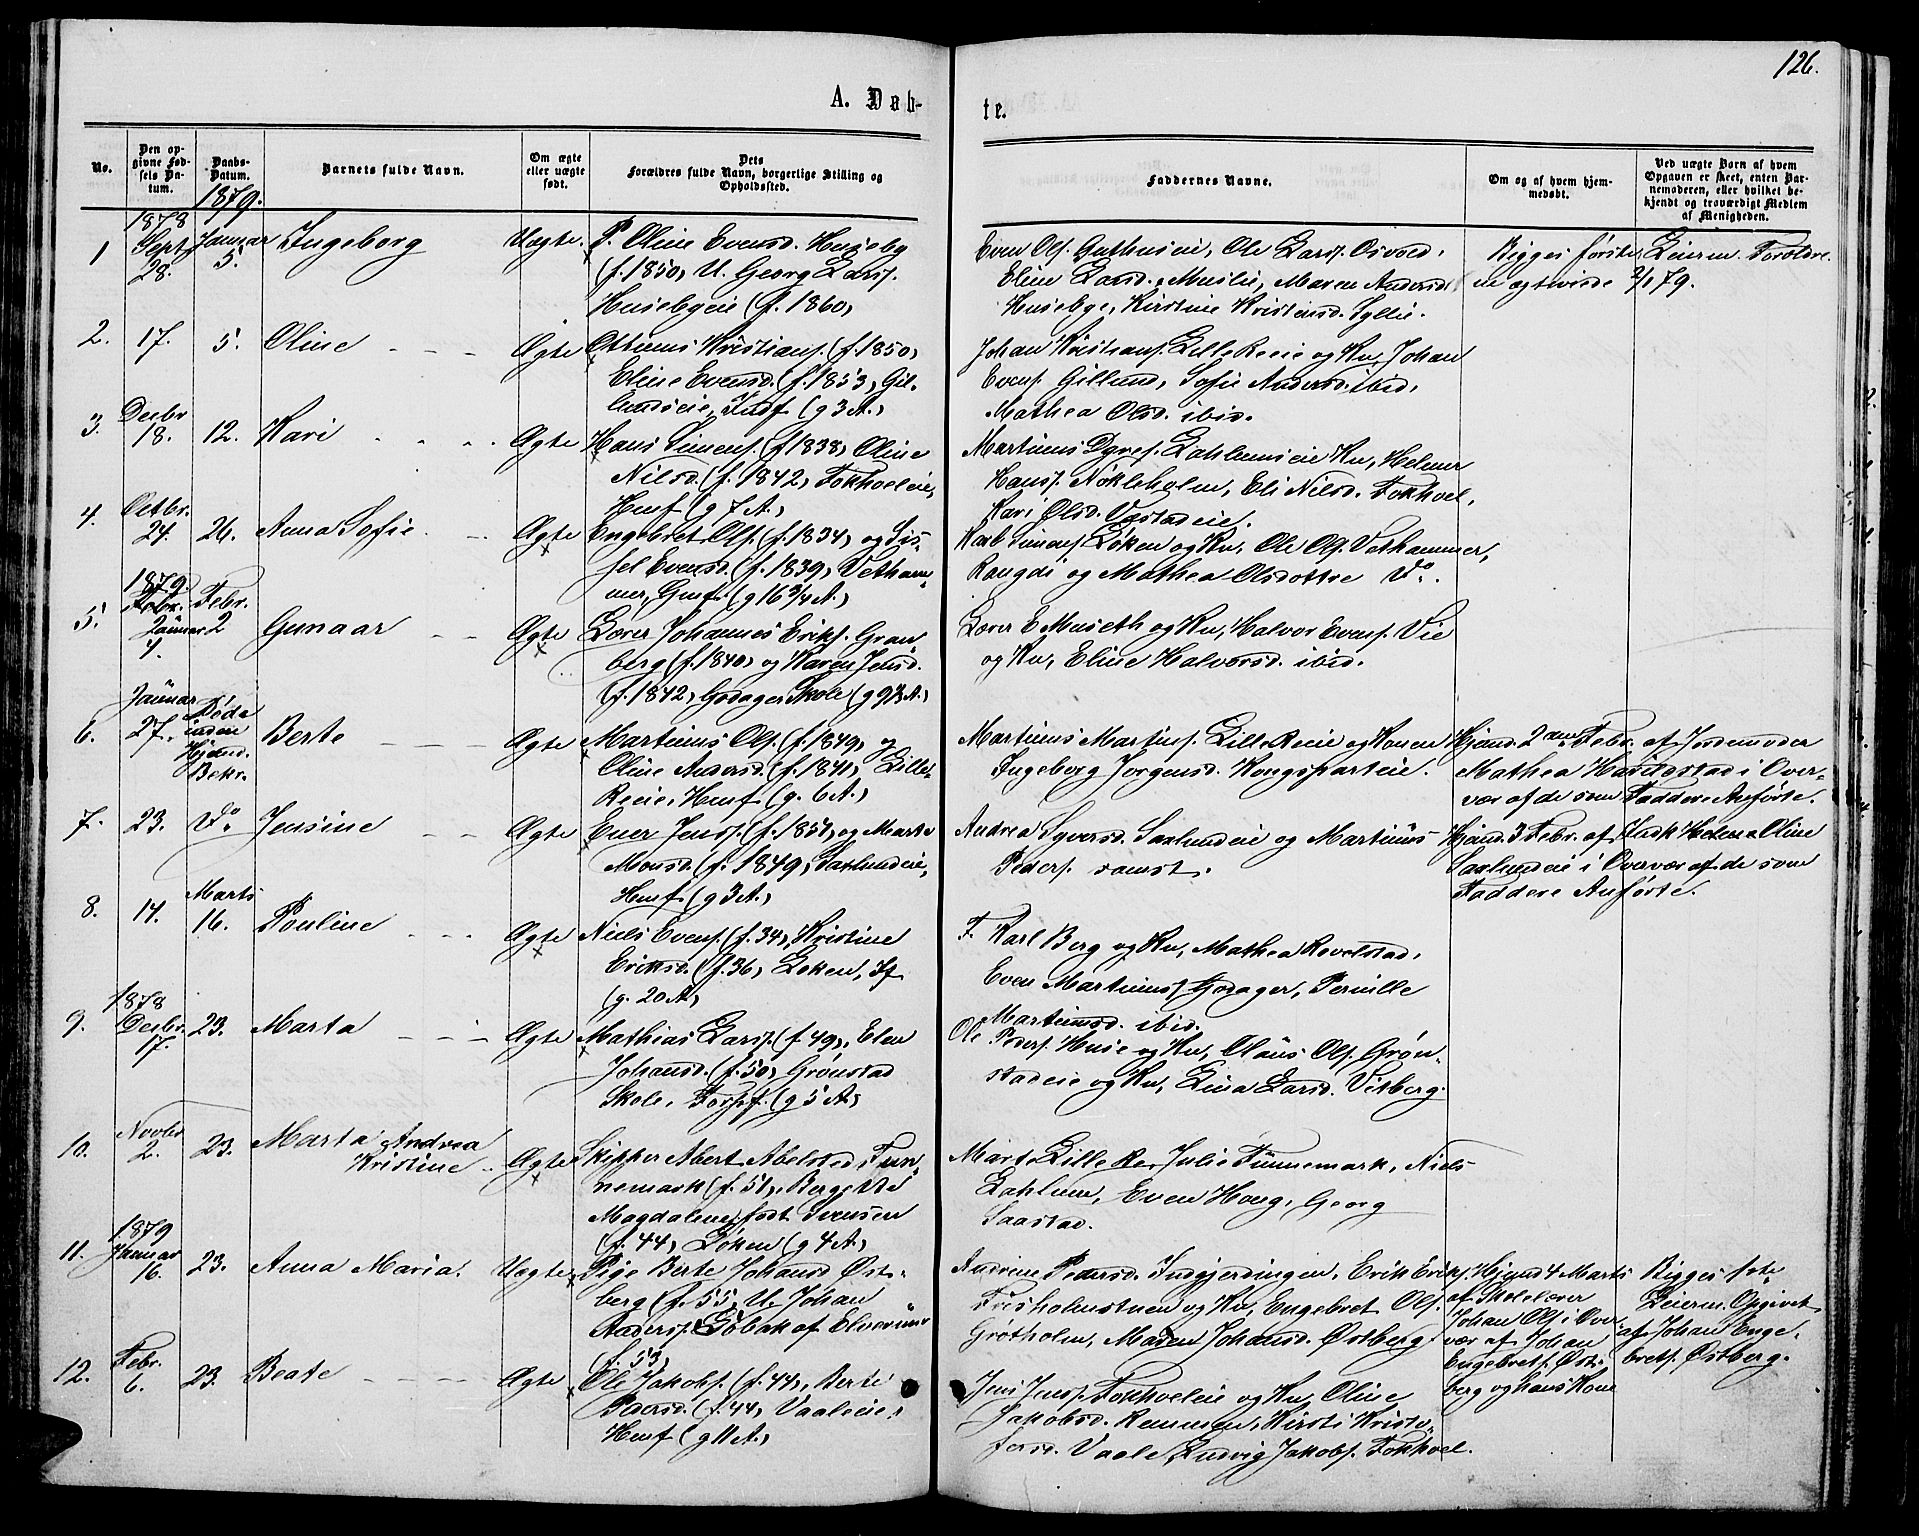 126.
A. Døb-
te.
No.
Den op-
givne Fød-
sels Da-
tum.
Daabs-
Datum.
1879.
Barnets fulde Navn.
Om ægte
eller uægte
født.
Dets
Forældres fulde Navn, borgerlige Stilling og
Opholdssted.
Faddernes Navne.
Om og af hvem hjem-
medøbt.
Ved uægte Barn af hvem
Opgaven er skeet, enten Bar-
nemoderen, eller hvilket be-
kjendt og troværdigt Medlem
af Menigheden.
1878
1
Sept
28.
Januar
5.
Ingeborg
Uægte.
P. Oline Evensd. Huseby
(f. 1850, U. Georg Larss.
Husebyeie (f. 1860,
Even Ols. Guthuseie, Ole Larss. Osvold,
Eline Larsd. Muslie, Maren Andersd.
Husebye, Kirstine Kristensd. Syllie.
Bigges første
Leierm. Forældre
2/1 79.
2.
17.
5.
Oline
Ægte
Ottinus Kristians. (f. 1850,
Eline Evensd. (f. 1853, Gil-
lundseie, Indf (g 3 A.)
Johan Kristians. Lille Reeie og Kn, Johan
Evens. Gillund, Sofie Andersd. ibid,
Mathea Olsd. ibid.
3.
Decbr
18.
12.
Kari
Ægte
Hans Simens. (f 1838, Oline
Nilsd. (f. 1842, Fokhveleie,
Husf (g 7 A.)
Martinus Dyres. Lahlumseie Kn, Helmer
Hanss. Nökleholm, Eli Nilsd. Fokhvel,
Kari Olsd. Vestadeie.
4.
Octbr.
24.
26.
Anna Sofie
Ægte
Engebret Ols. (f. 1834, og Sis-
sel Evensd. (f. 1839, Vetham-
mer, Gmf. (g 16 3/4 A.)
Karl Simens. Løken og Kn, Ole Ols. Vethammer,
Rangdi og Mathea Olsdøttre Do.
1879
5.
Januar
Febr.
2
Gunaar
Ægte
Lærer Johannes Eriks. Gran-
berg (f. 1840, og Karen Jensd.
(f. 1842, Godager Skole
Lærer E Museth og Kn, Halvor Evens. Vie
og Kn, Eline Halvorsd. ibid.
6.
Januar
27.
Døde
inden
Hjemd.
Bekr.
Berte
Ægte
Martinus Ols. (f. 1849, og
Oline Andersd. (f. 1841, Lille-
Reeie, Husf (g. 6 A.)
Martinus Martins. Lille Reeie og Konen
Ingeborg Jørgensd. Kongsparteie.
Hjemd. 2den Febr. af Jordemoder
Mathea i Over-
vær af de som Faddere Anførte.
7.
23.
Do.
Jensine
Ægte
Ener Jenss. (f. 1851, og Marte
Monsd. (f. 1849, Saxlundeie,
Husf (g 3 A.)
Andrea Syversd. Saxlundeie og Martinus
Peders. samst.
Hjemd. 3 Febr. af Indk Helene Oline
Saxlundeie i Overvær af de som
Faddere Anførte.
8.
14.
Marts
16.
Pauline
Ægte
Niels Evens. (f. 34, Kristine
Eriksd. (f. 36, Løken, Sf
(g. 20 A,
F. Karl Berg og Kn, Mathea Rovelstad,
Even Martinus. Godager, Pernille
Martinusd. ibid.
1878
9.
Decbr.
17.
23.
Marta
Ægte
Mathias Larss. (f. 49, Elen
Johansd. (f. 50, Grønstad
Skole, Torpf. (g 5 A,
Ole Peders. Huse og Kn, Olaus Ols. Grøn-
stadeie og Kn, Lina Larsd. Vitberg.
10.
Novbr
2.
23.
Marta Andrea
Kristine
Ægte
Skipper Abert Abelsted Tun-
nemark (f. 51, Bergitte
Magdalene født Svensen
(f. 44) Løken (g 4 A,
Mart. Lille Re, Julie Tünnemark, Niels
Lahlum, Even Haug, Georg
Saastad.
1879
11.
Januar
16.
23.
Anna Maria.
Uægte
Pige Berte Johansd Øst-
berg (f. 55, U. Johan
Anders. Löbak af Elverum
(f. 53,
Andrine Pedersd. Indgjerdingen, Erik Eriks.
Frisholmstuen og Kn, Engebret Ols.
Grøtholm, Maren Johansd. Østberg
Hjemd 4 Marts
af Skolelærer
Johan Ols. i Over-
vær af Johan
Engebrets. Øst-
berg og hans Kone
Bigges 1ste
Leierm. Opgivet
af Johan Enge-
brets. Østberg.
12.
Febr.
6.
23.
Beate
Ægte
Ole Jakobs. (f. 44, Berte
Pedersd. (f. 44, Vaaleie,
Husf (g 11 A,
Jens Jenss. Fokhveleie og Kn, Oline
Jakobsd. Remmen, Kirsti Kristo-
fersd. Vaale, Ludvig Jakobs. Fokhvel.